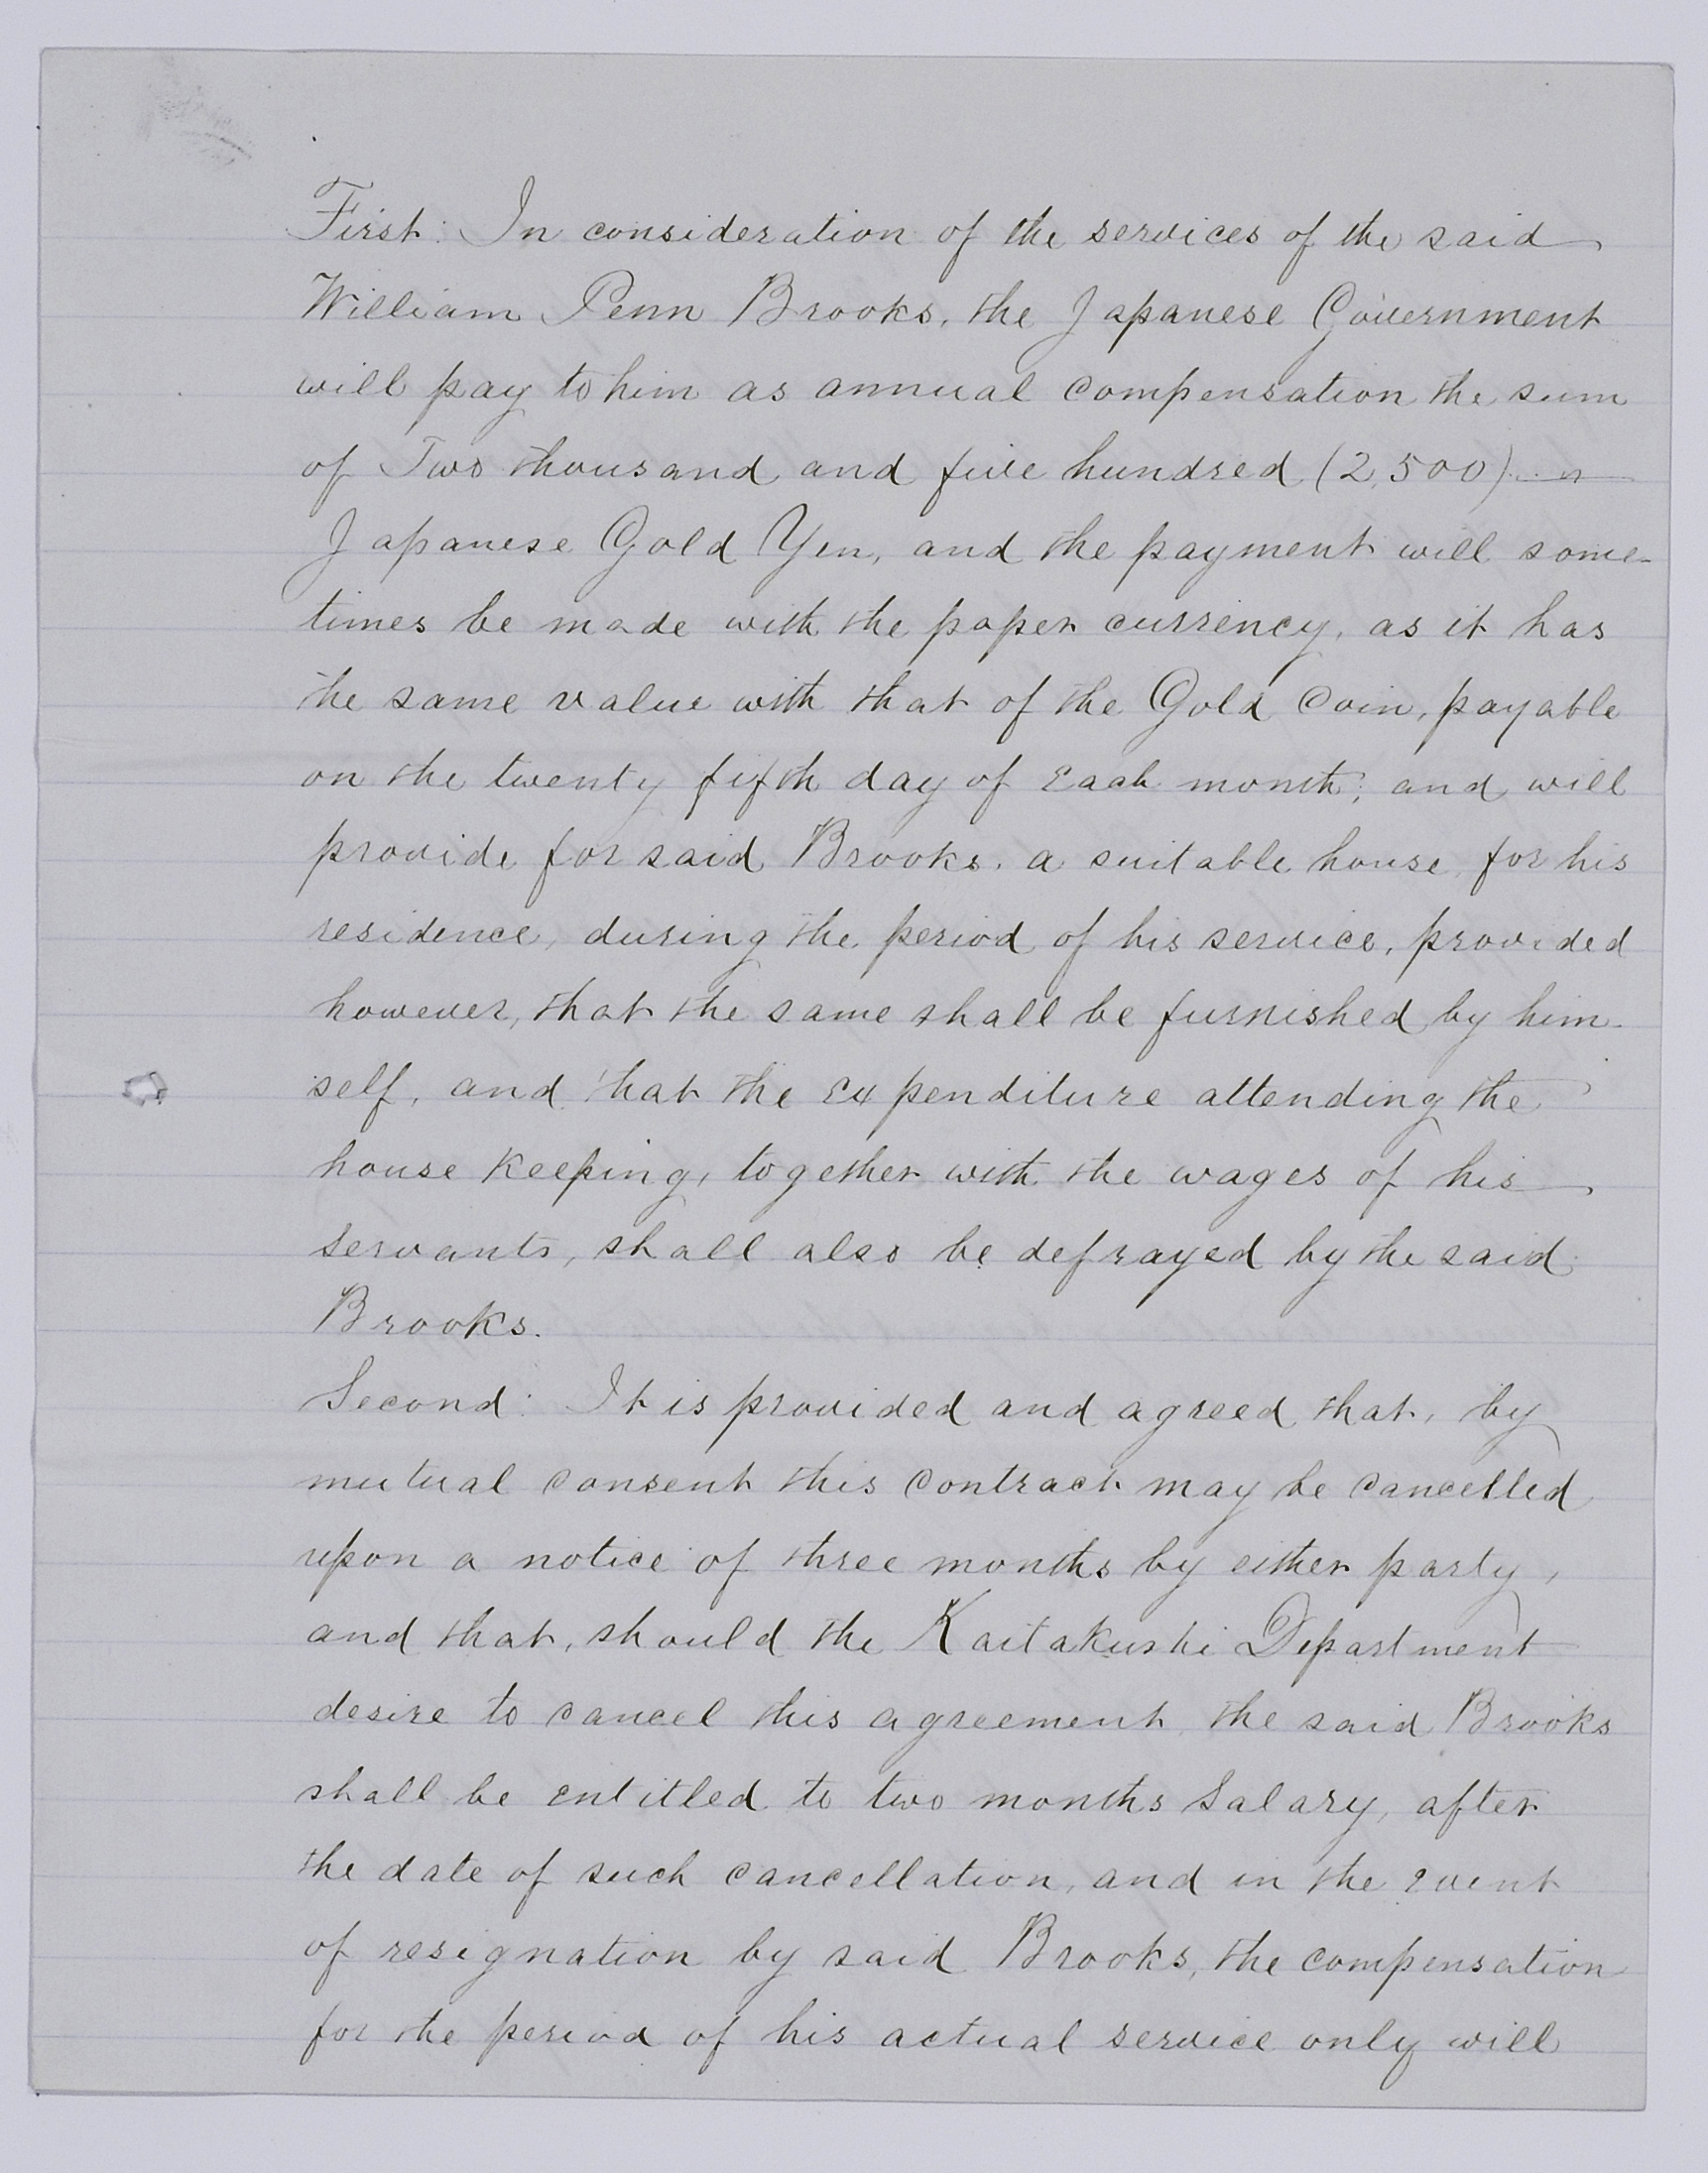 First: In consideration of the services of the said
William Penn Brooks, the Japanese Government
will pay to him as annual compensation the sum
of Two thousand and five hundred (2,500)
Japanese Gold Yen, and the payment will some-
times be made with the paper currency, as it has
the same value with that of the Gold Coin, payable
on the twenty fifth day of each month; and will
provide for said Brooks, a suitable house, for his
residence, during the period of his service, provided
however, that the same shall be furnished by him-
self, and that the expenditure attending the
house keeping, together with the wages of his
servants, shall also be defrayed by the said
Brooks.
Second: It is provided and agreed that, by
mutual consent this contract may be cancelled
upon a notice of three months by either party,
and that, should the Kaitakushi Department
desire to cancel this agreement, the said Brooks
shall be entitled to two months Salary, after
the date of such cancellation, and in the event
of resignation by said Brooks, the compensation
for the period of his actual service only will